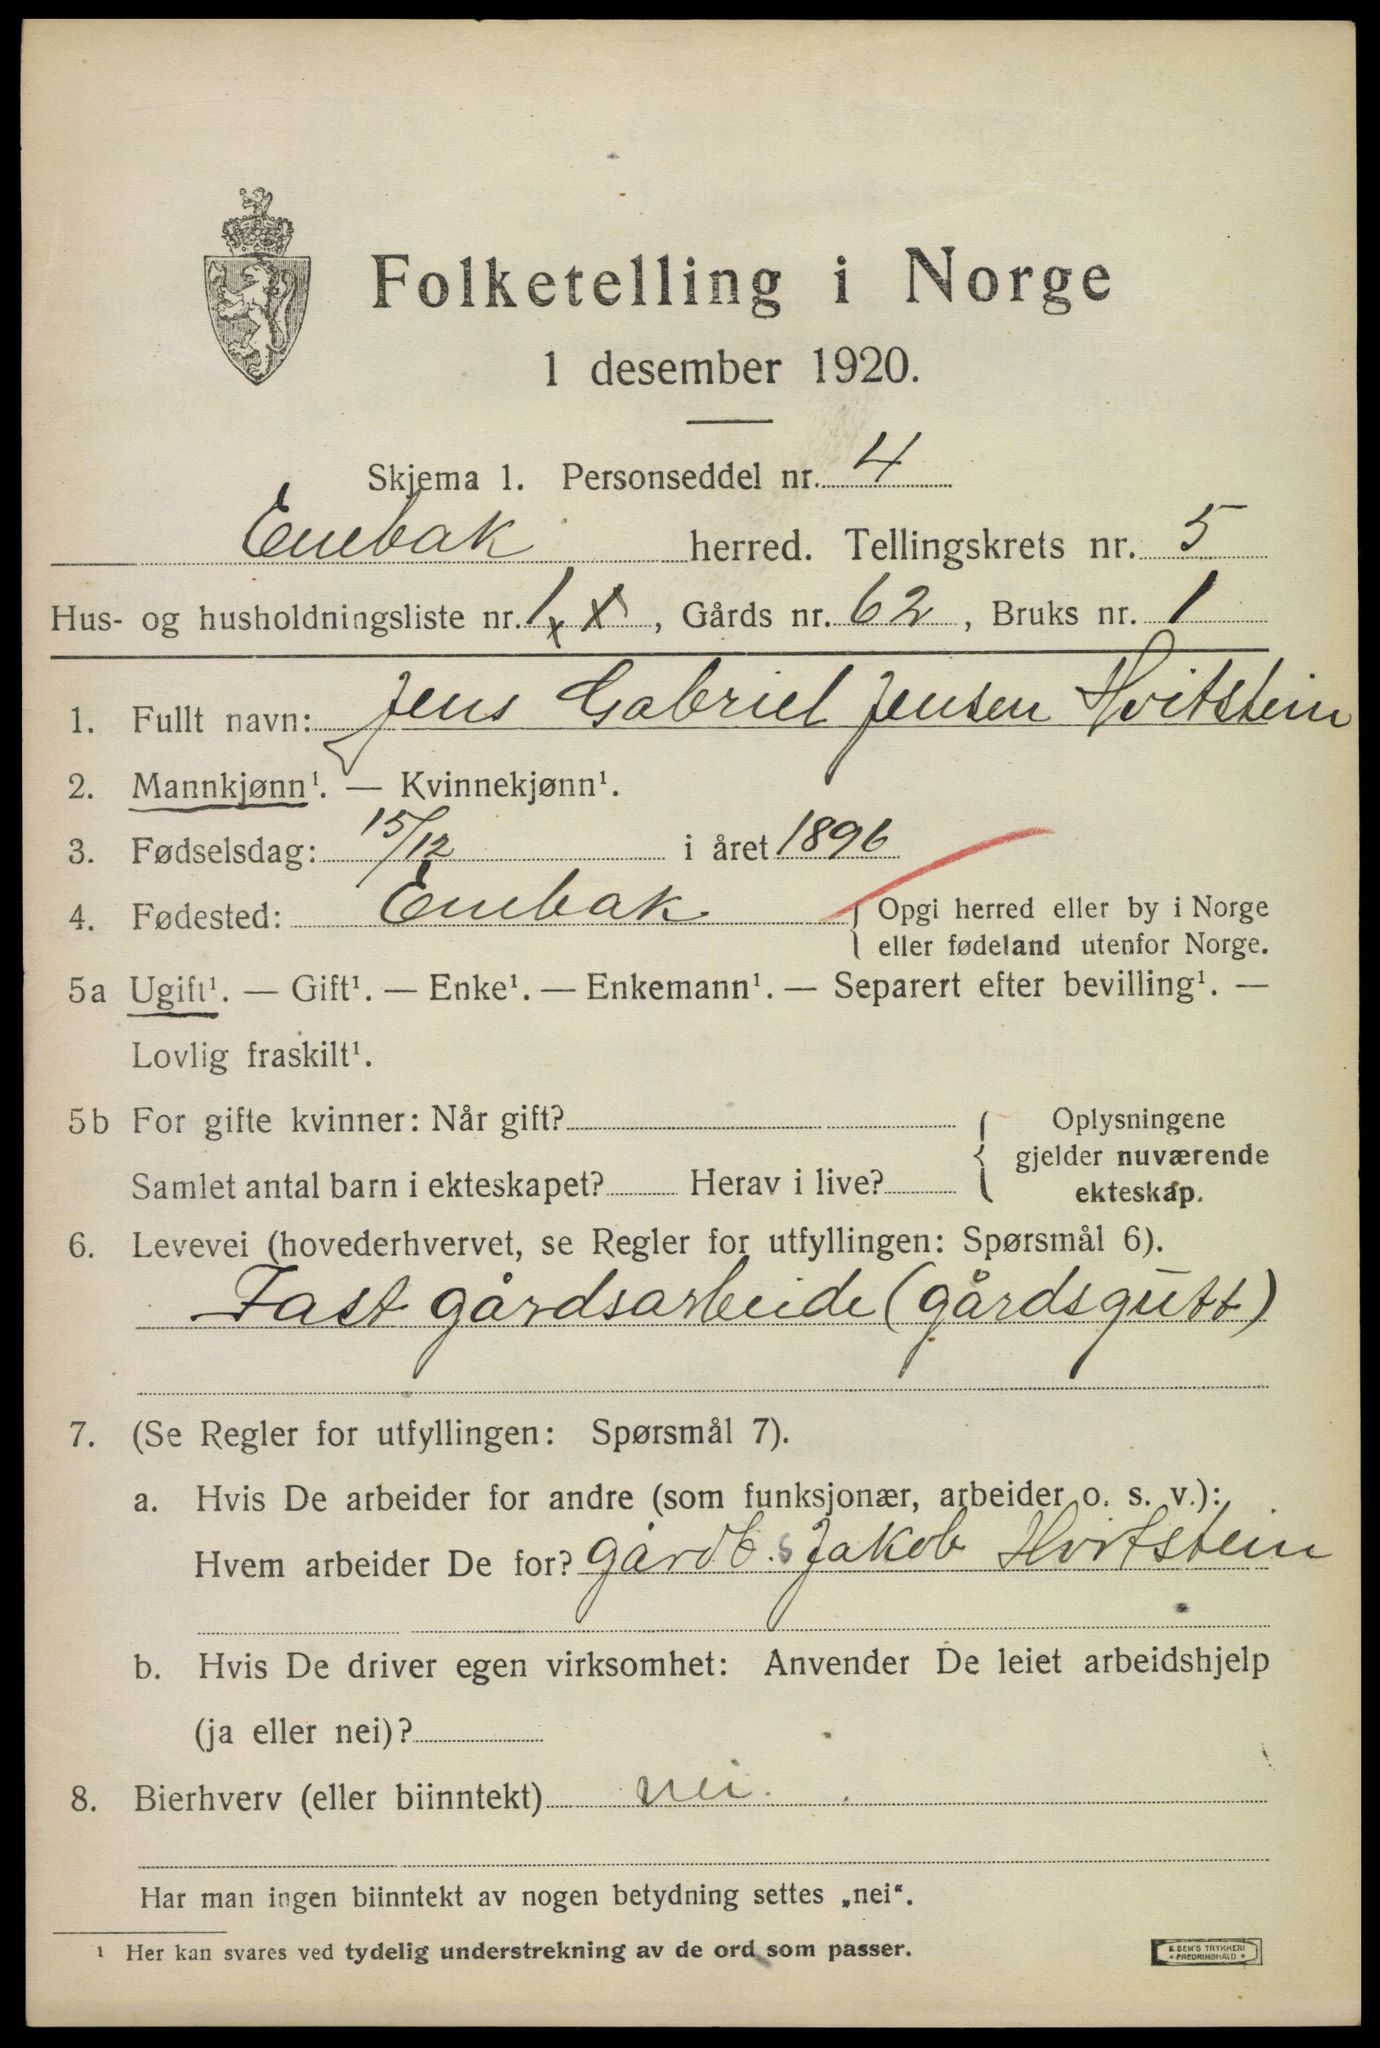 Folketelling i Norge
1 desember 1920.
Skjema 1. Personseddel nr. 4
Enebak herred. Tellingskrets nr. 5
Hus- og husholdningsliste nr. 1 x x, Gårds nr. 62, Bruks nr. 1
1. Fullt navn: Jens Gabriel Jensen Hvitstein
2. Mannkjønn¹. — Kvinnekjønn¹.
3. Fødselsdag: 15/12 i året 1896
4. Fødested: Enebak { Opgi herred eller by i Norge
eller fødeland utenfor Norge.
5a Ugift¹. — Gift¹. — Enke¹. — Enkemann¹. — Separert efter bevilling¹. —
Lovlig fraskilt¹.
5b For gifte kvinner: Når gift? { Oplysningene
gjelder nuværende
Samlet antal barn i ekteskapet? Herav i live? ekteskap.
6. Levevei (hovederhvervet, se Regler for utfyllingen: Spørsmål 6).
Fast gårdsarbeide (gårdsgutt)
7. (Se Regler for utfyllingen: Spørsmål 7).
a. Hvis De arbeider for andre (som funksjonær, arbeider o. s. v.):
Hvem arbeider De for? gårdb.s Jakob Hvitstein
b. Hvis De driver egen virksomhet: Anvender De leiet arbeidshjelp
(ja eller nei)?
8. Bierhverv (eller biinntekt) nei.
Har man ingen biinntekt av nogen betydning settes „nei“.
¹ Her kan svares ved tydelig understrekning av de ord som passer.
E. SEM'S TRYKKERI
FREDRIKSHALD